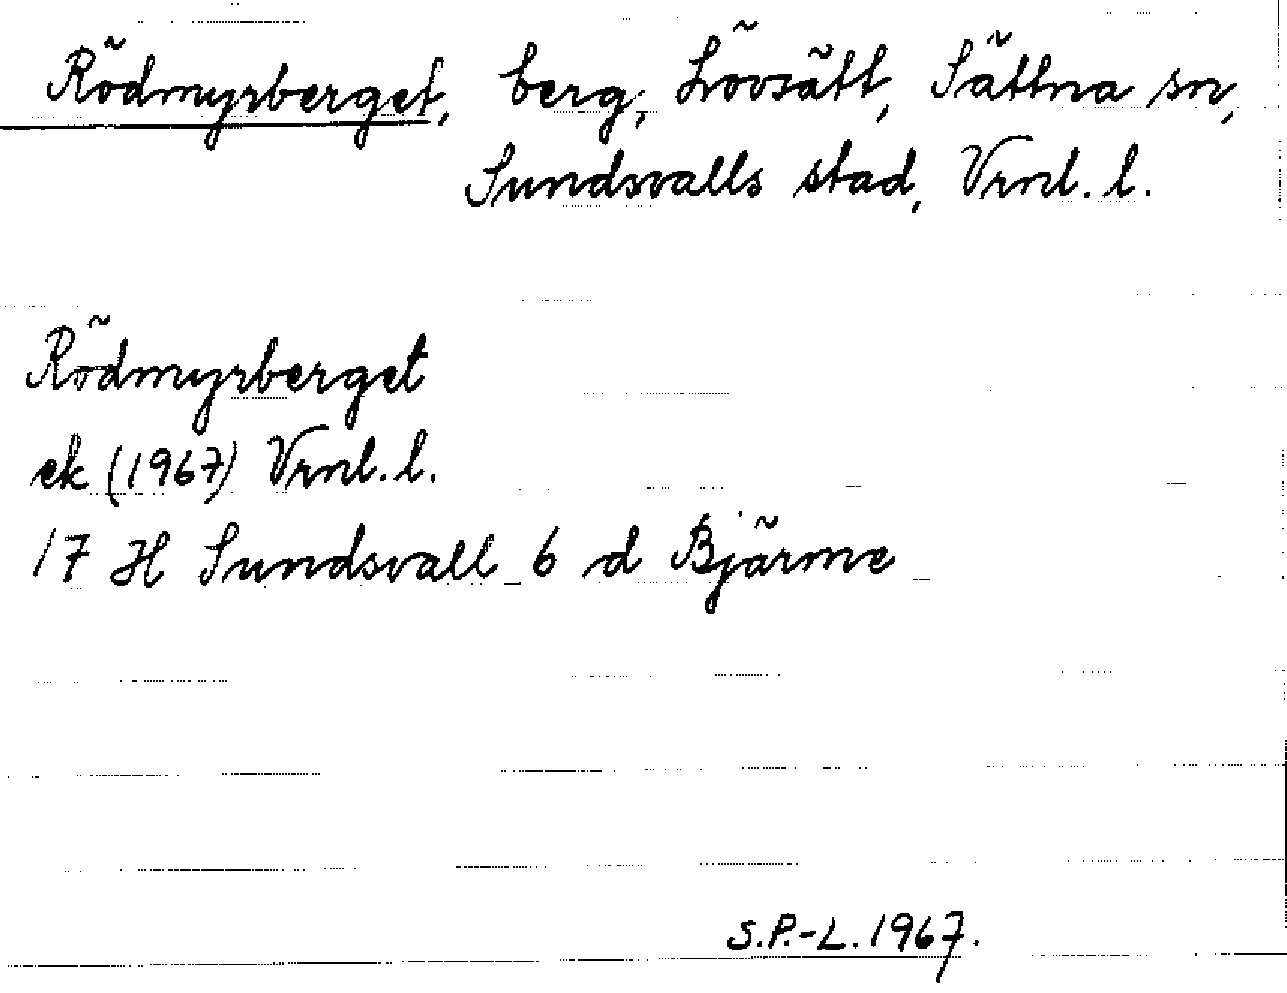 Rödmyrberget, berg, Lövsätt, Sättna sn,
Sundsvalls stad, Vrnl. l.
Rödmyrberget
ek (1967) Vrnl. l.
17 H Sundsvall 6 d Bjärme
S.P.-L. 1967.